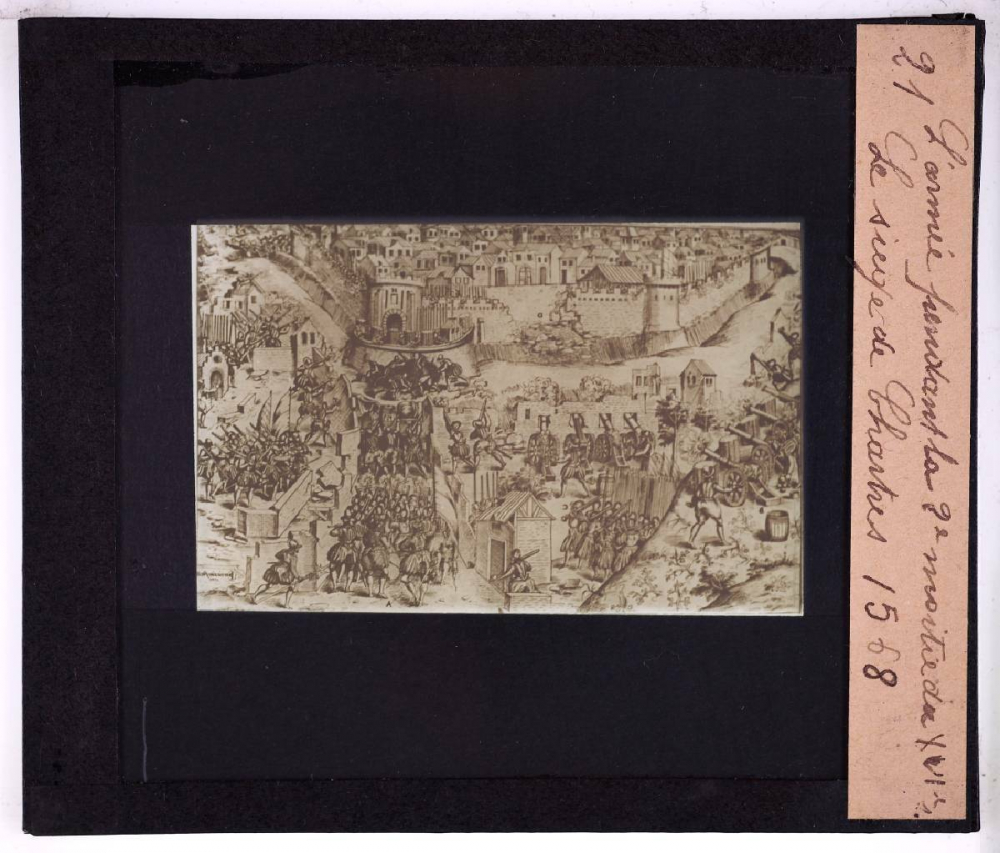 21 L'armée pendant la 2e moitié du XVIe s.
Le siège de Chartres 1568
A